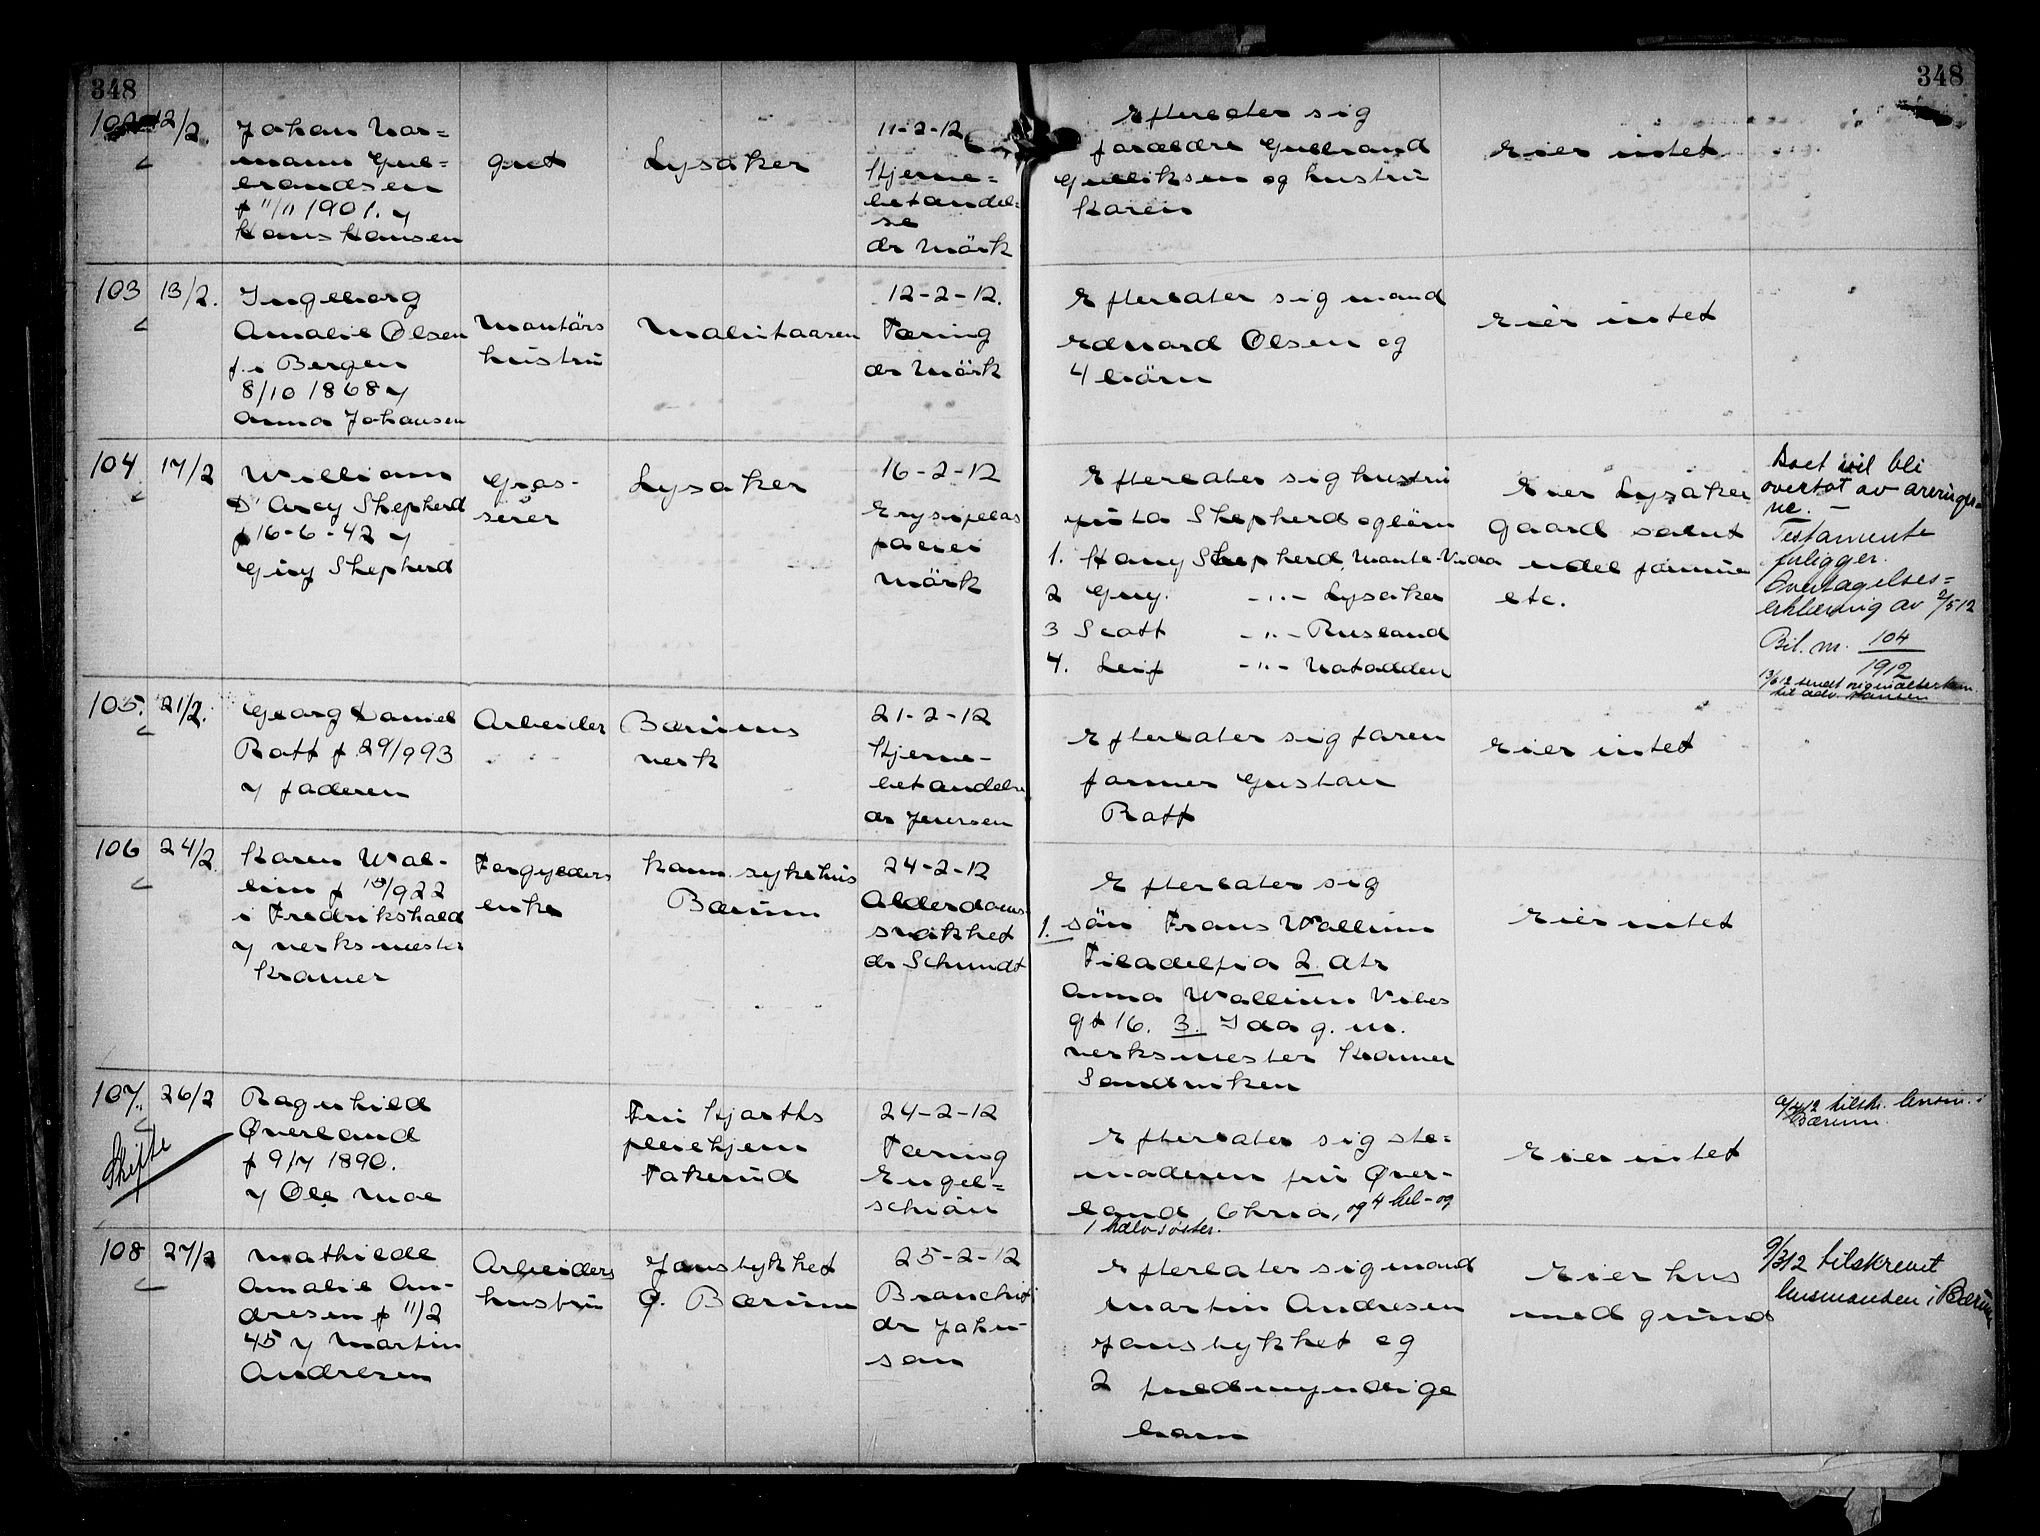 348
348
102 12/2.
Johan Nor=
mann Gul=
brandsen
f 11/11 1901. y
Hans Hansen
gut
Lysaker
11-2-12
Hjerne=
betændel=
se
dr Mörk
Efterlater sig
forældre Gulbrand
Gulliksen og hustru
Karen
Eier intet
103 13/2.
Ingeborg
Amalie Olsen
f. i Bergen
8/10 1868 y
Anna Johansen
Montörs
hustru
12-2-12.
Tæring
dr Mörk
Efterlater sig mand
Edvard Olsen og
4 börn
Eier intet
104 17/2
William
D'Arcy Shepherd
f 16-6-42 y
Guy Shepherd
Gros-
serer
Lysaker
16-2-12
Erysipelas
faciei
Mörk
Efterlater sig hustru
Shepherd og börn
1. Harry Shepherd,
2 Guy. -"- Lysaker
3 Scott -"- Rusland
4. Leif -"- Notodden
Eier Lysaker
gaard samt
endel formue
etc.
Boet vil bli
overtat av arvinger=
ne. -
Testamente
foreligger.
Overtagelses=
erklæring av 2/5 12
Bil. nr. 104
1912
13/6 12 sendt
til adv. Hansen
105. 21/2.
Georg Daniel
Rott f 29/9 93
y faderen
Arbeider
Bærums
verk
21-2-12
Hjerne-
betændelse
dr Jensen
Efterlater sig faren
former Gustav
Rott
Eier intet
106 24/2.
Karen Wal-
linn f 15/9 22
i Fredrikshald
y verksmester
Kramer
Forgylders
enke
Kom. sykehus
Bærum
24-2-12
Alderdoms
svakhet
dr Schmidt
Efterlater sig
1. sön Frans Wallinn
Filadelfia 2. dtr
Anna Wallinn Vibes
gt 16. 3. Ida g. m.
verksmester Kramer
Sandviken
Eier intet
107. 26/2
Skifte
Ragnhild
Øverland
f 9/7 1890.
y Ole Moe
Fru Hjorths
pleiehjem
Tokerud
24-2-12
Tæring
Engel=
schiön
Efterlater sig ste=
moderen fru Øver-
land, Chria, og 4 hel- og
1 halvsøster.
Eier intet
tilskr. lensm. i
Bærum.
108 27/2
Mathilde
Amalie An-
dresen f 11/2
45 y Martin
Andresen
Arbeiders
hustru
Jonstykket
Ø. Bærum
25-2-12
Bronchit
dr John-
son
Efterlater sig mand
Martin Andresen
Jonstykket og
2 fuldmyndige
barn
Eier hus
med grund
9/3 12 tilskrevet
lensmanden i Bærum